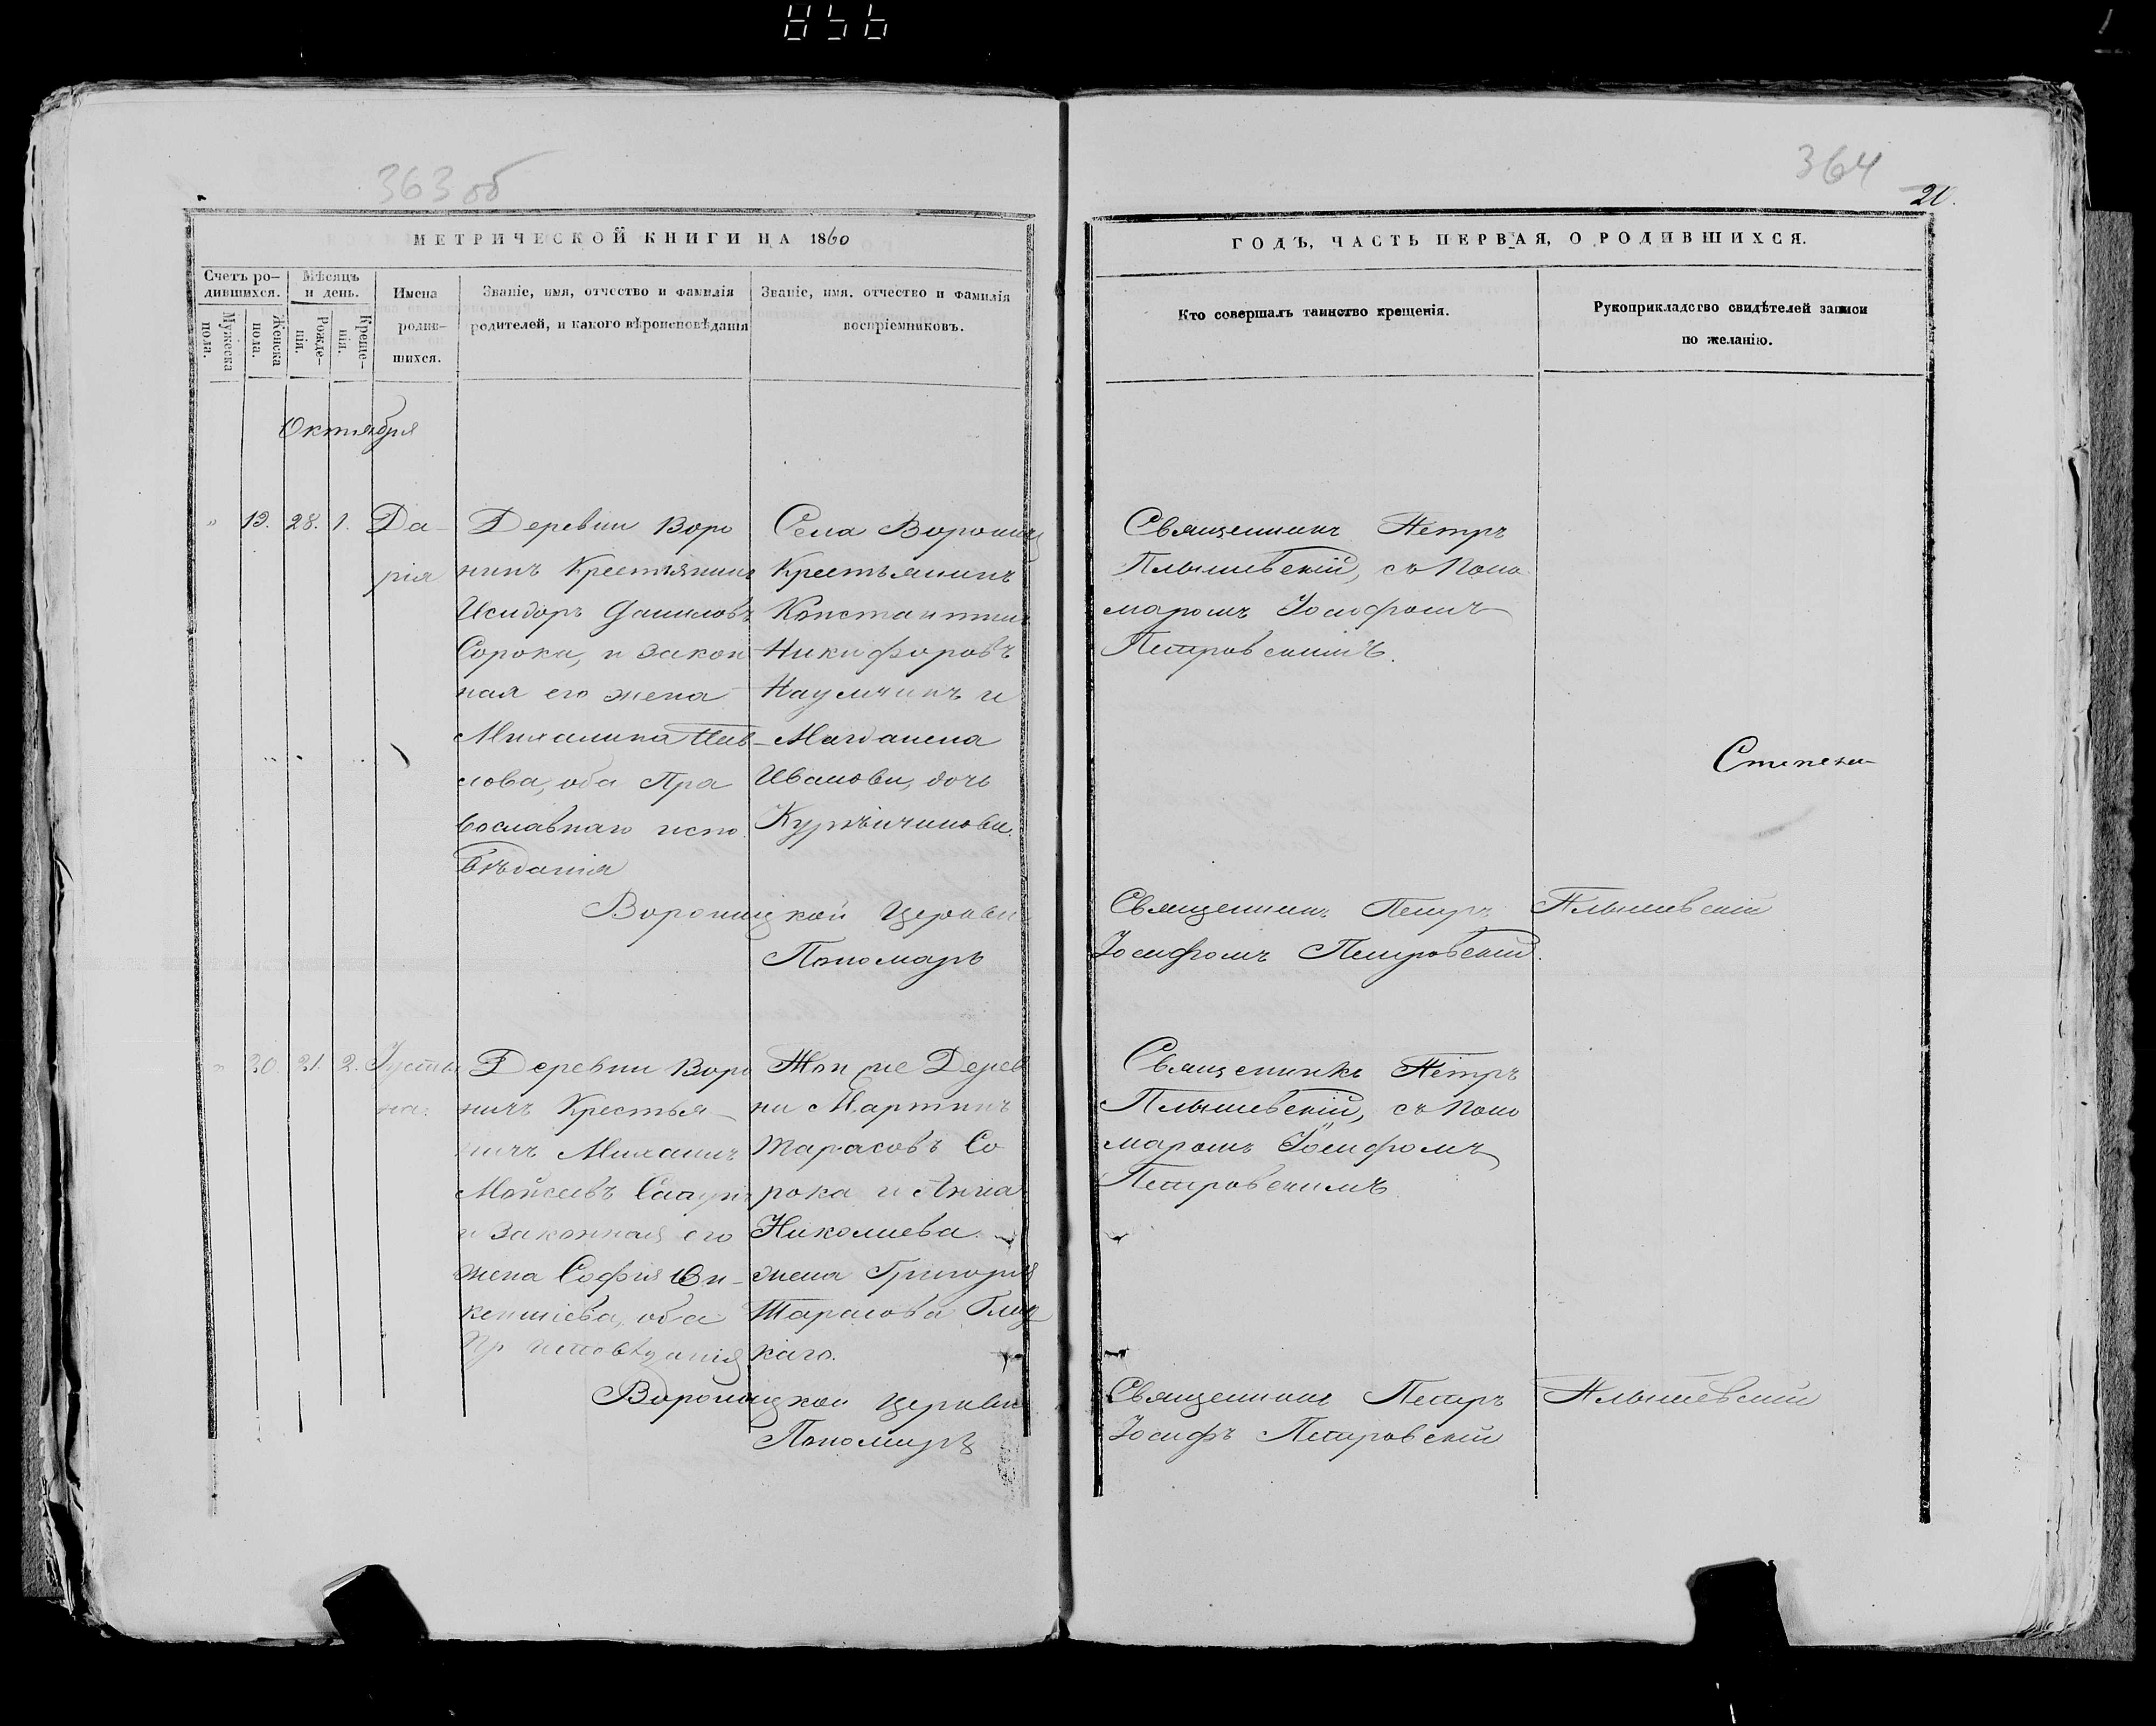 856
363 об
МЕТРИЧЕСКОЙ КНИГИ НА 1860
Счетъ ро-
дившихся.
Мѣсяцъ
и день.
Мужеска
пола.
Женска
пола.
Рожде-
нія.
Креще-
нія.
Имена
родив-
шихся.
Званіе, имя, отчество и фамилія
родителей, и какого вѣроисповѣданія
Званіе, имя. отчество и фамилія
воспріемниковъ.
Октября
" 19. 28. 1. Да-
рія
Деревни Воро
нинъ Крестьянинъ
Исидоръ Даниловъ
Сорока, и закон
ная его жена
Михалина Пав-
лова, оба Пра
вославнаго испо
вѣданія
СелаВорониц
Крестьянинъ
Константинъ
Никифоровъ
Наумчикъ и
Магдалена
Иванова, дочь
Вороницкой Церкви
Пономаръ
" 20. 21. 2. Густи
на.
Деревни Воро
нинъ Крестья-
нинъ Михаилъ
Мойсеевъ
и законная его
жена София
оба
Пр исповѣданія
Той же Дерев
ни Мартинъ
Тарасовъ Со
рока и Анна
Николаева
жена Григорія
Тарасова
каго.
Вороницкой Церкви
Пономаръ
364
20.
ГОДЪ, ЧАСТЬ ПЕРВАЯ, О РОДИВШИХСЯ.
Кто совершалъ таинство крещенія.
Рукоприкладство свидѣтелей записи
по желанію.
Священникъ Петръ
Плышевскій, съ Поно
маромъ Іосифомъ
Петровскимъ.
Степень
Священникъ Петръ Плышевскій
Іосифомъ Петровскій.
Священникъ Петръ
Плышевскій, съ Поно
маромъ Іосифомъ
Петровскимъ
Священникъ Петръ Плышевскій
Іосифъ Петровскій